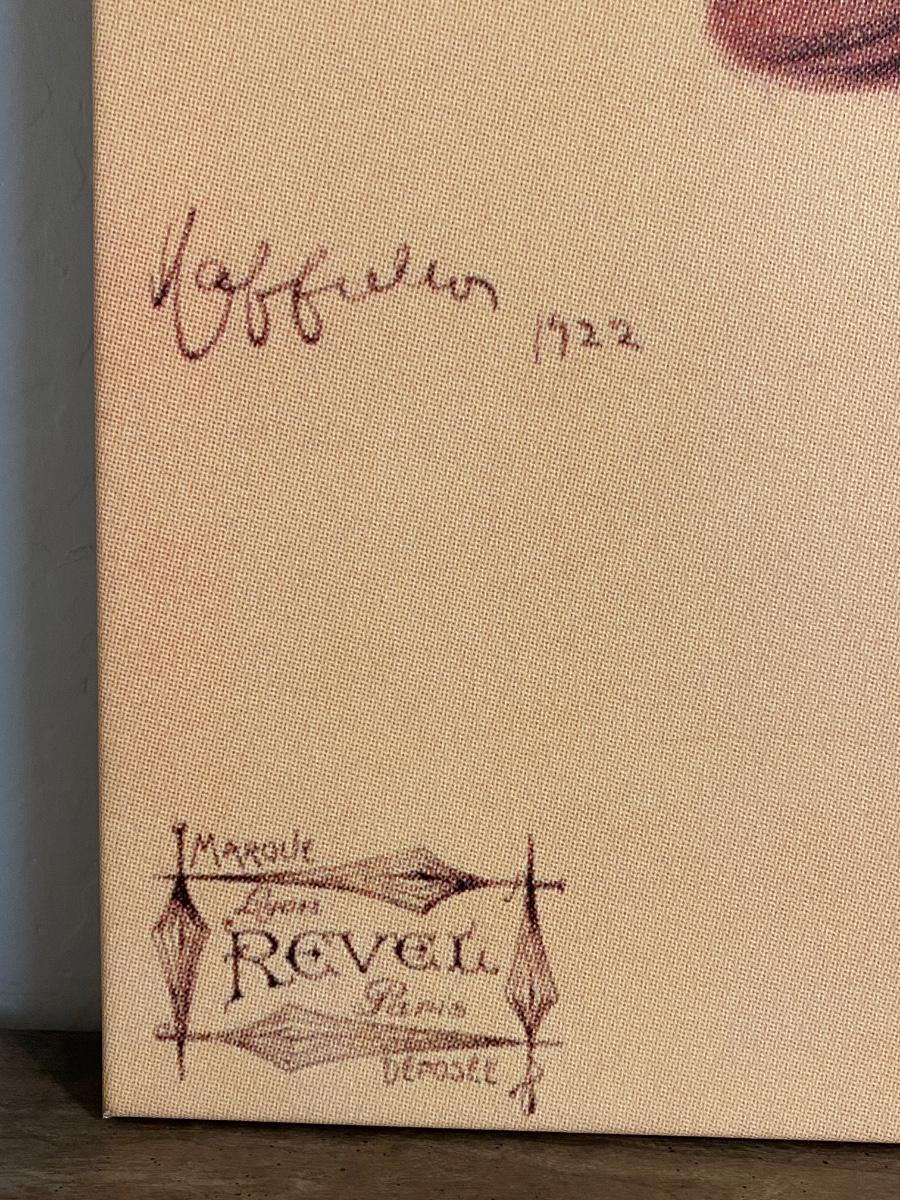 1922
MARQUE
Lyon
REVEL
Paris
DÉPOSÉE